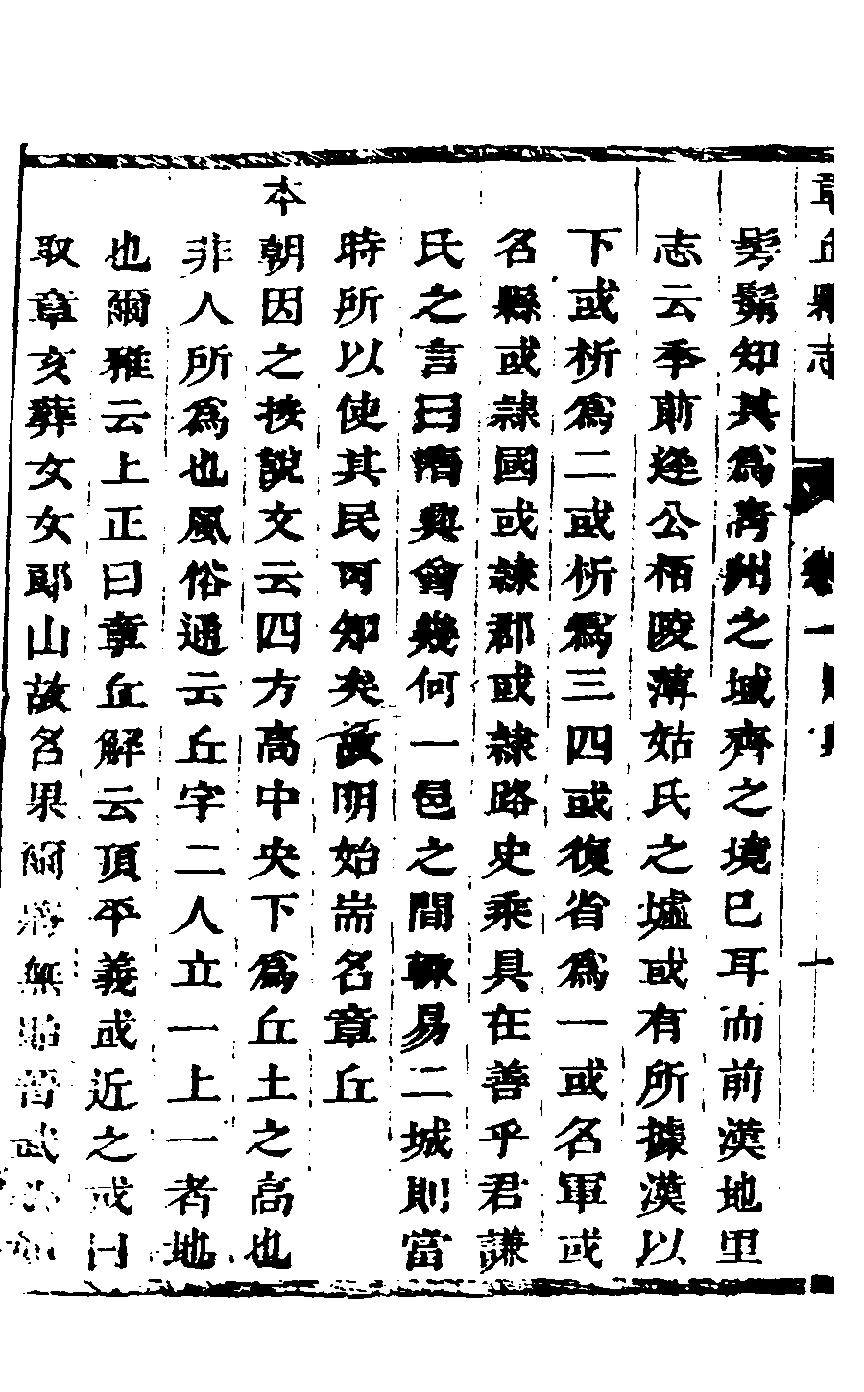 章丘縣志 卷一 一
髣髴知其為青州之域齊之境已耳而前漢地里
志云季萴逄公栢陵薄姑氏之墟或有所據漢以
下或析為二或析為三四或復省為一或名軍或
名縣或隷國或隷郡或隷路史乘具在善乎君謙
氏之言曰濟與會幾何一邑之間輒易二城則當
時所以使其民可知矣故明始耑名章丘
本朝因之按說文云四方高中央下為丘土之高也
非人所為也風俗通云丘字二人立一上一者地
也爾雅云上正曰章丘解云頂平義或近之或曰
取章亥葬女女郎山故名果爾將無貽晉武